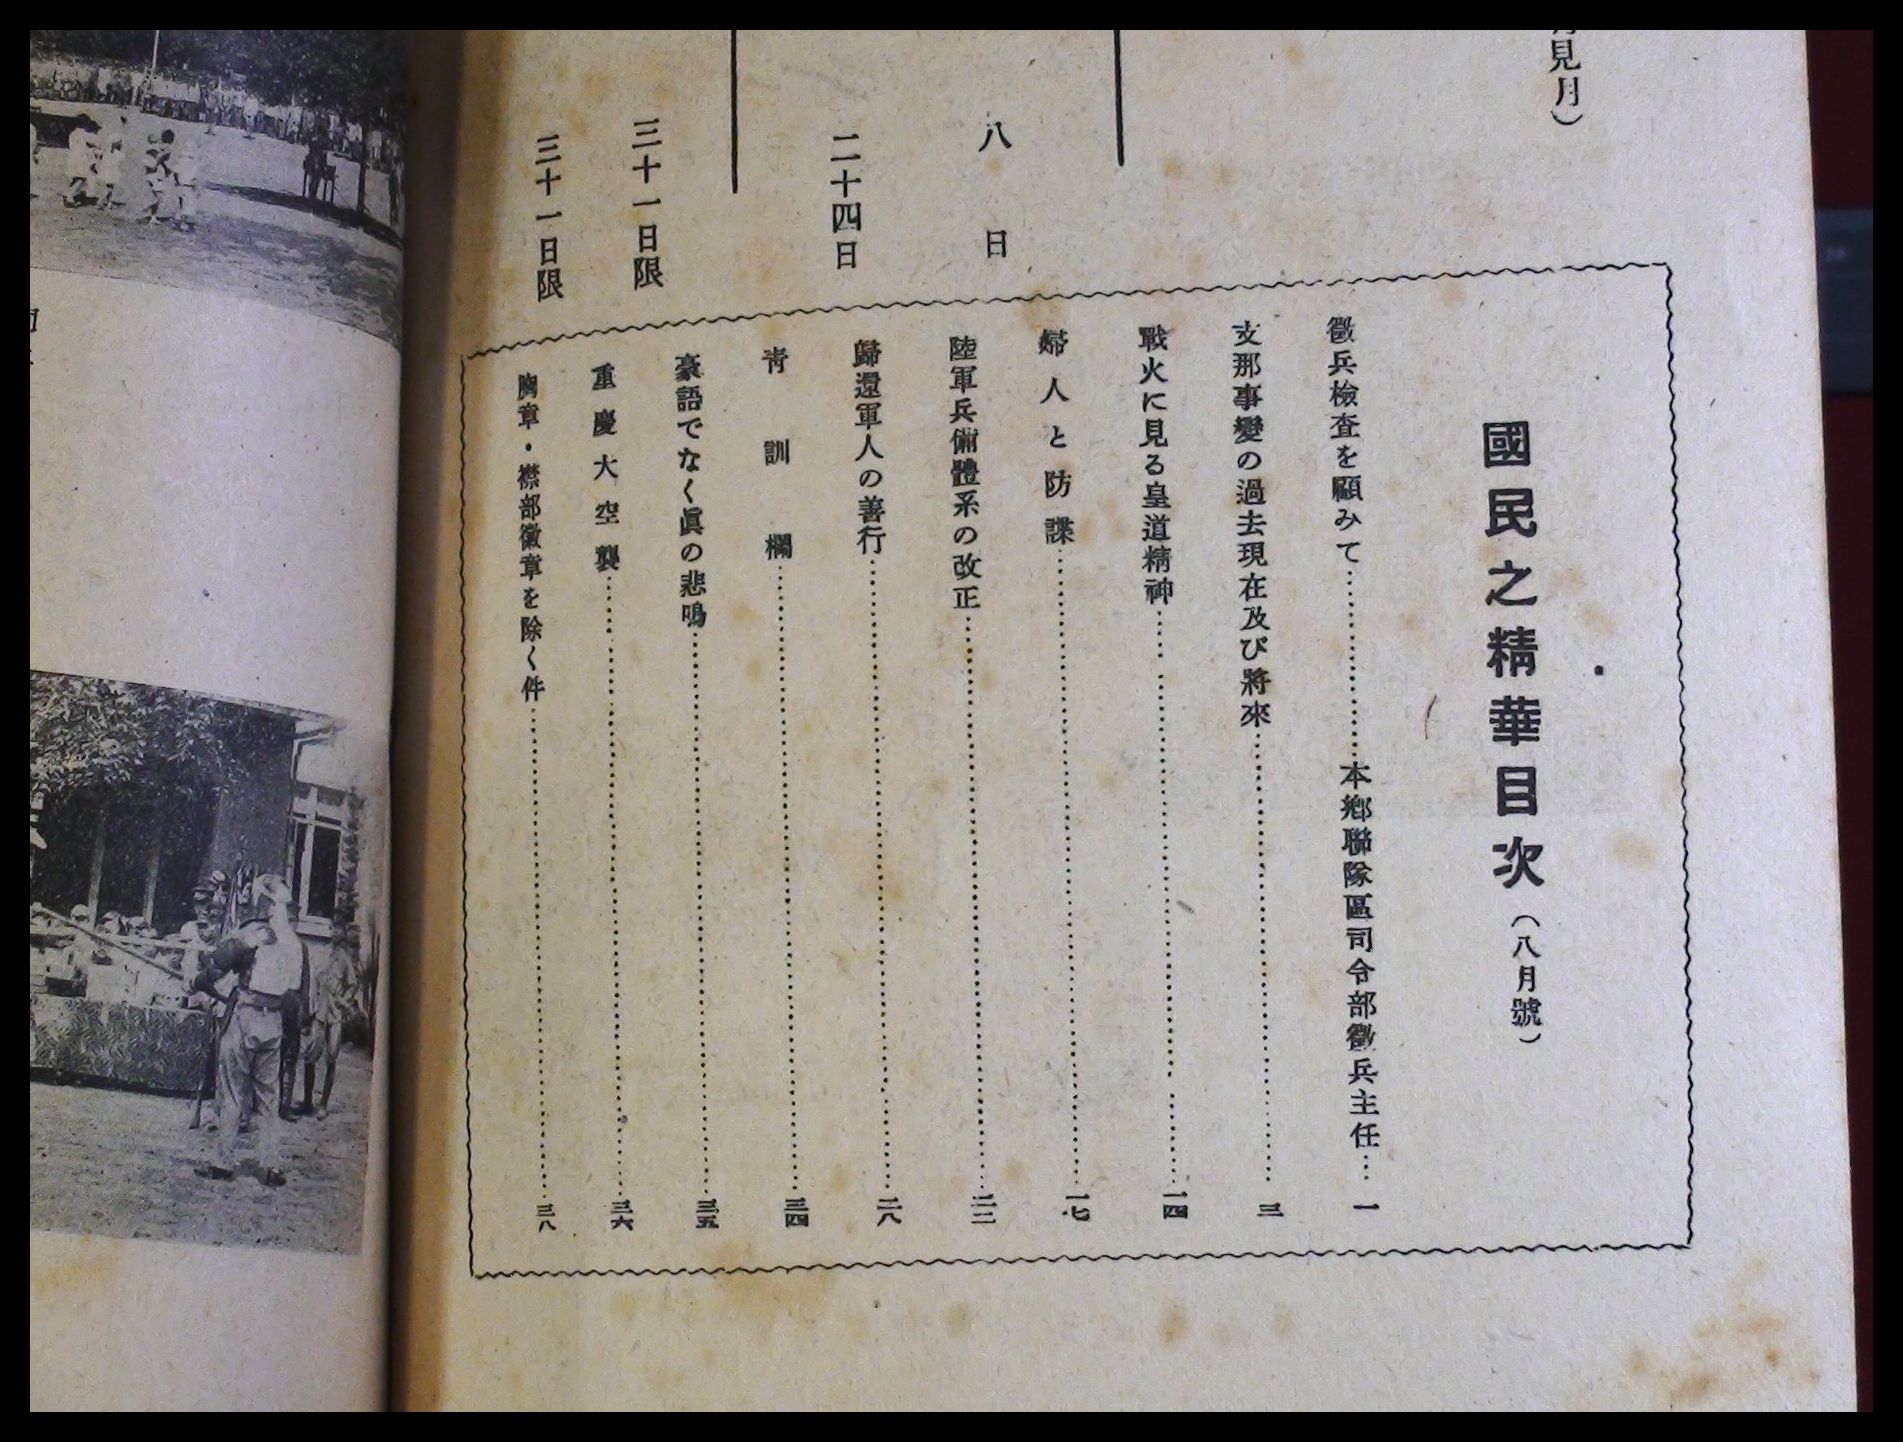 見月）
八日
二十四日
三十一日限
三十一日限
國民之精華目次（八月號）
徵兵檢査を顧みて…………………本鄕聯隊區司令部徵兵主任…一
支那事變の過去現在及び將來…………………三
戰火に見る皇道精神…………………一四
婦人と防諜…………………一七
陸軍兵備體系の改正…………………二二
歸還軍人の善行…………………二八
靑訓欄…………………三四
豪語でなく眞の悲鳴…………………三五
重慶大空襲…………………三六
胸章・襟部徽章を除く件…………………三八